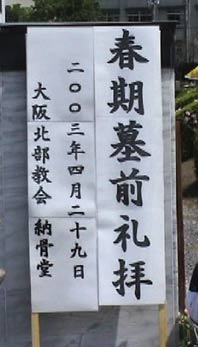 春期墓前礼拝
二〇〇三年四月二十九日
大阪北部教会 納骨堂